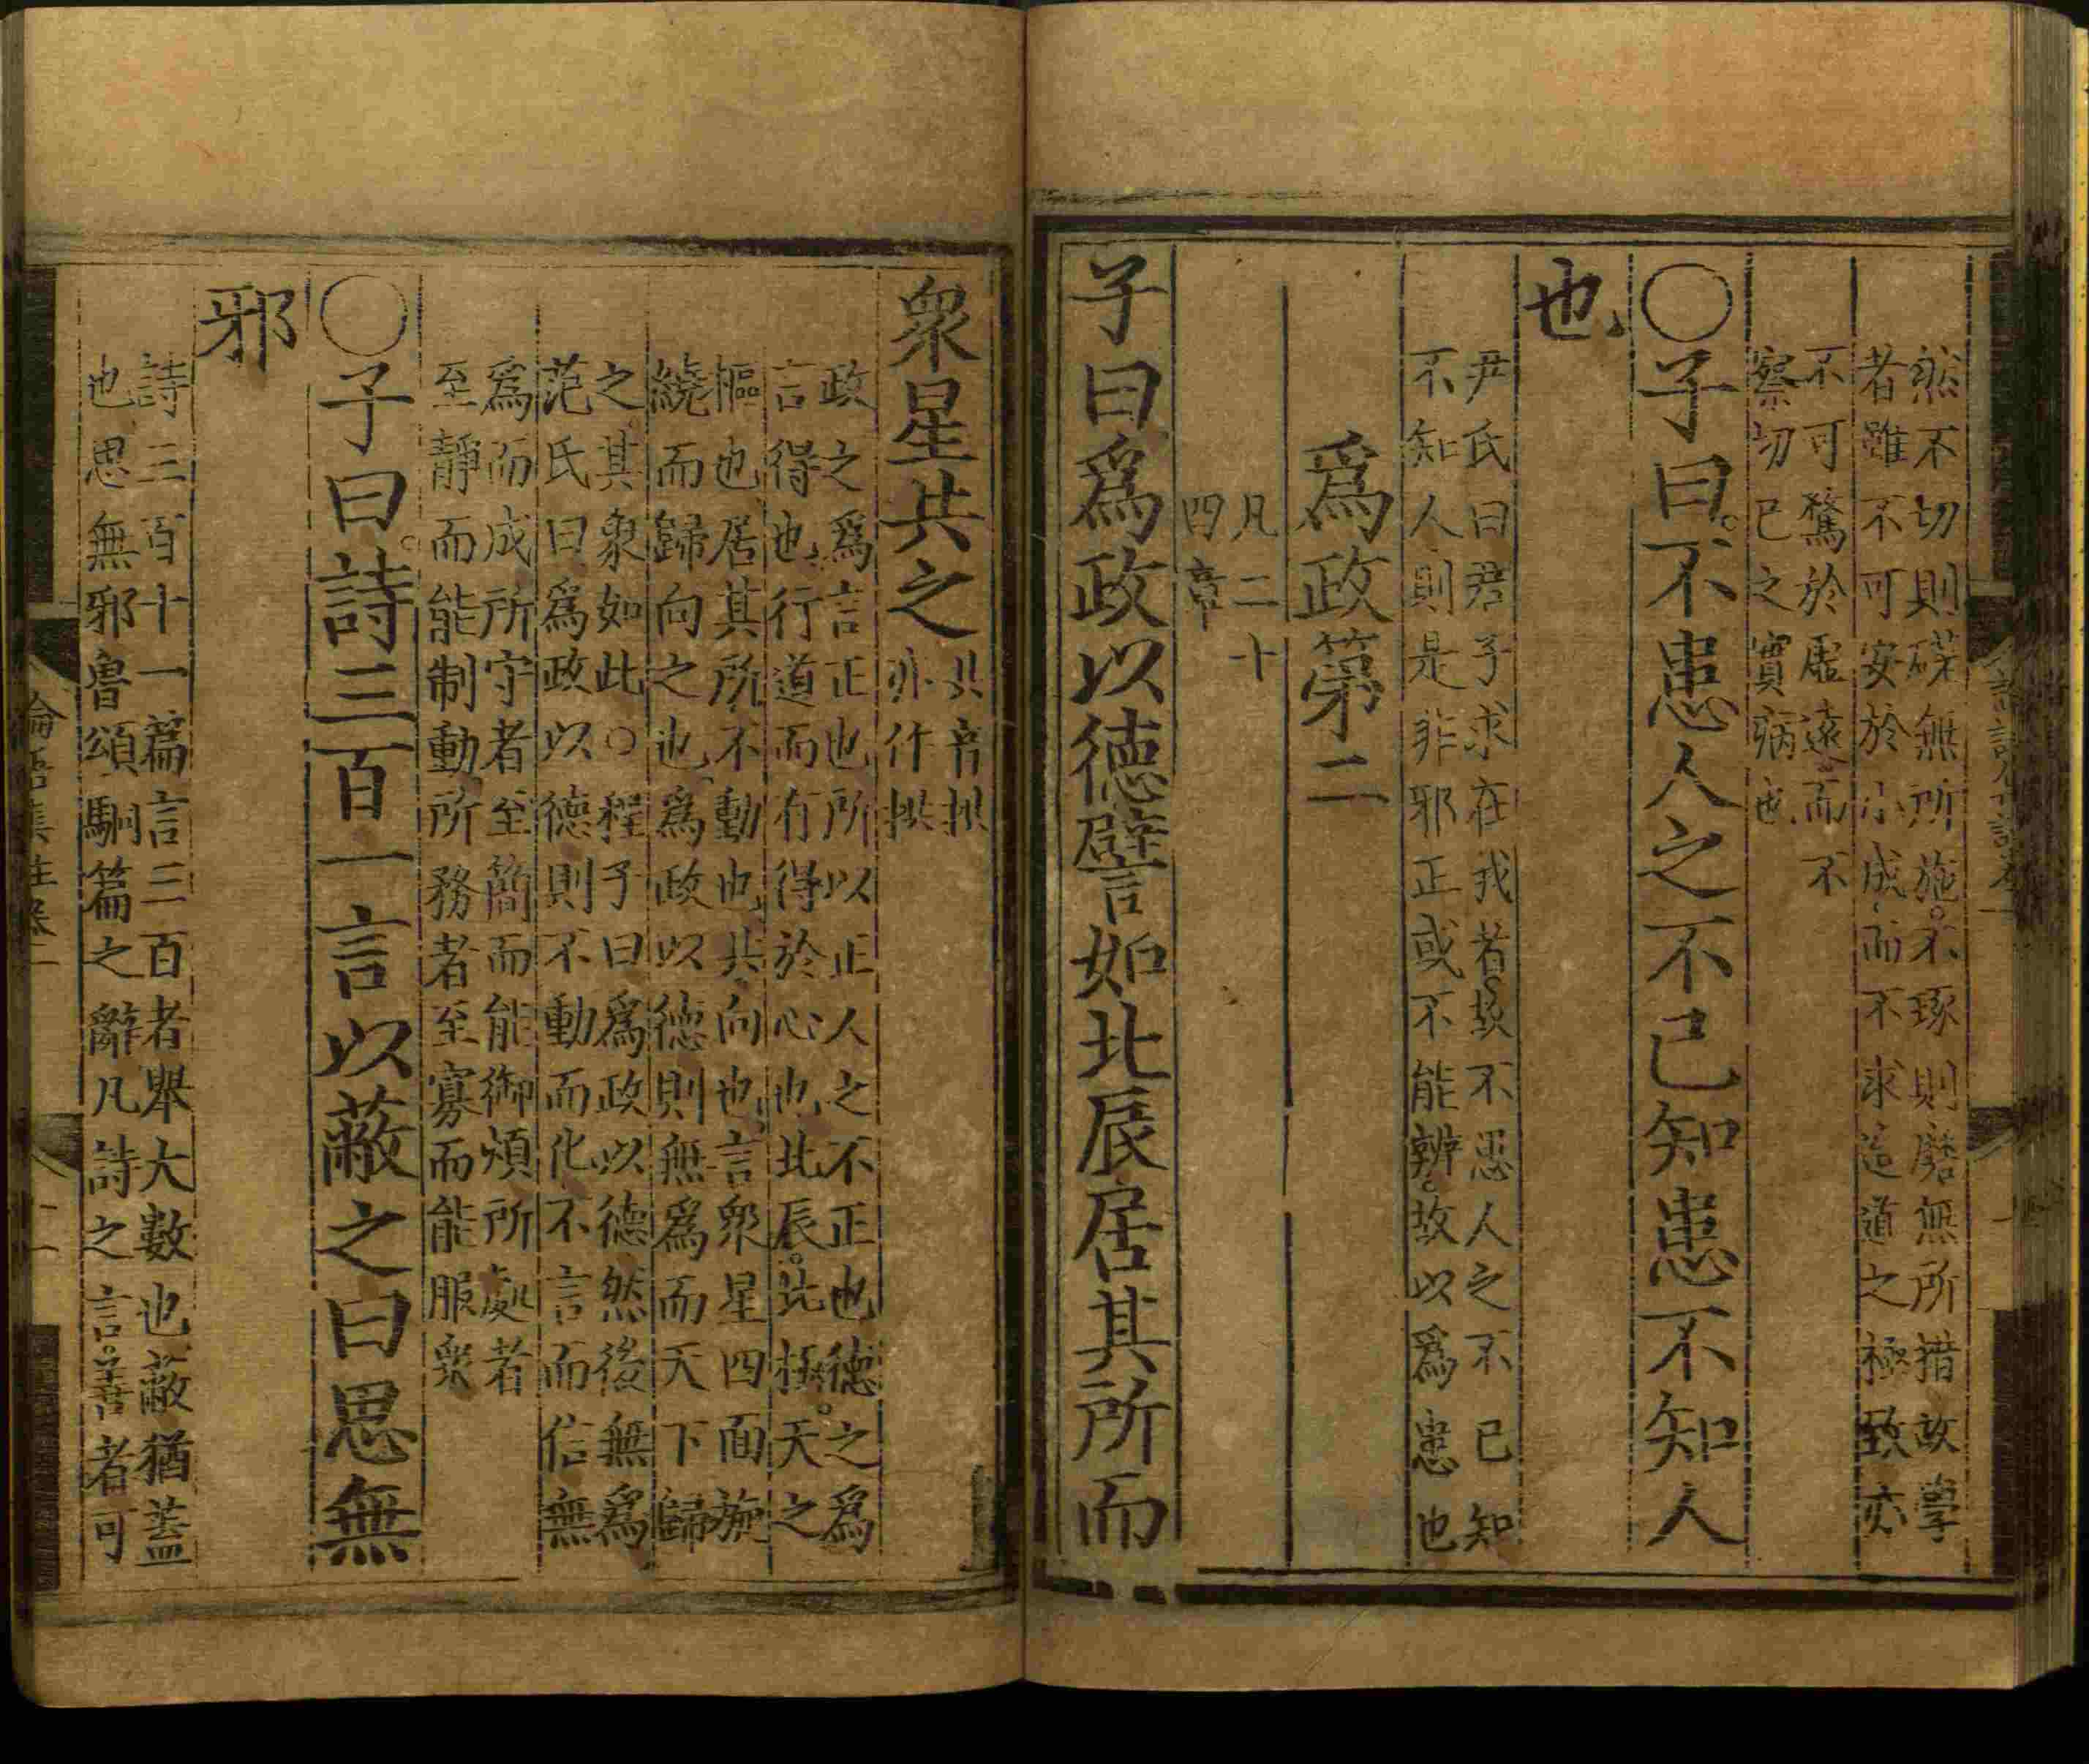 然不切則磋無所施不琢則磨無所措故學
者雖不可安於小成而不求造道之極致亦
不可騖於虛遠而不
察切己之實病也
○子曰不患人之不己知患不知人
也
尹氏曰君子求在我者故不患人之不己知
不知人則是非邪正或不能辨故以爲患也
爲政第二
凡二十
四章
子曰爲政以德譬如北辰居其所而
衆星共之
共音拱
亦作拱
政之爲言正也所以正人之不正也德之爲
言得也行道而有得於心也北辰北極天之
樞也居其所不動也共向也言衆星四面旋
繞而歸向之也爲政以德則無爲而天下歸
之其衆如此○程子曰爲政以德然後無爲
范氏曰爲政以德則不動而化不言而信無
爲而成所守者至簡而能御煩所處者
至靜而能制動所務者至寡而能服衆
○子曰詩三百一言以蔽之曰思無
邪
詩三百十一篇言三百者舉大數也蔽猶蓋
也思無邪魯頌駉篇之辭凡詩之言善者可
論語集註卷一
二